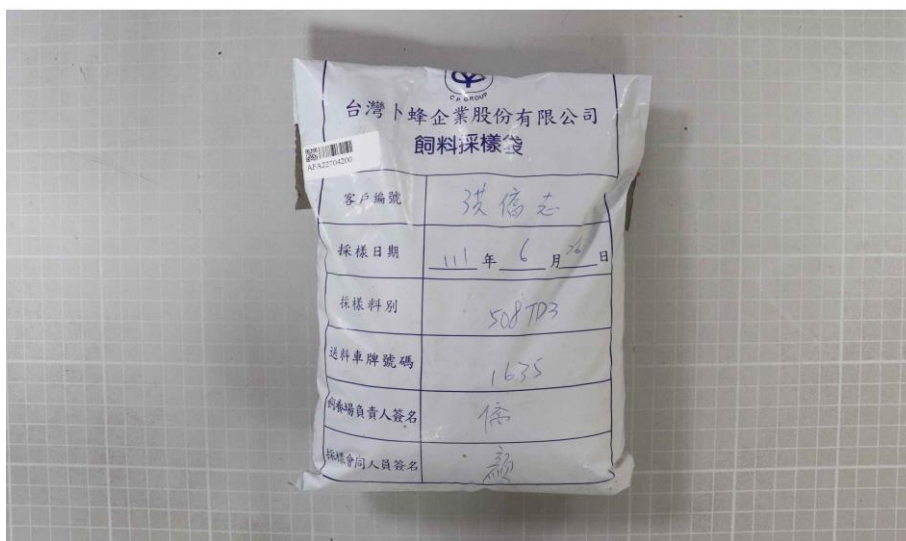 C.P. GROUP
台灣卜蜂企業股份有限公司
飼料採樣袋
AFA22704200
客戶編號 洪僑志
採樣日期 111 年 6 月 26 日
採樣料別 508TD3
送料車牌號碼 1635
飼養場負責人簽名 僑
採樣會同人員簽名 顏